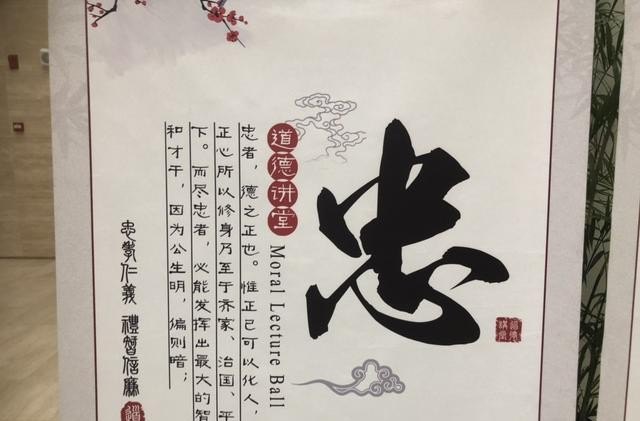 忠
道德讲堂
Moral Lecture Ball
忠者，德之正也。惟正己可以化人，
正心所以修身乃至于齐家、治国、平
下。而尽忠者，必能发挥出最大的智
和才干，因为公生明，偏则暗；
忠孝仁義 禮智信廉